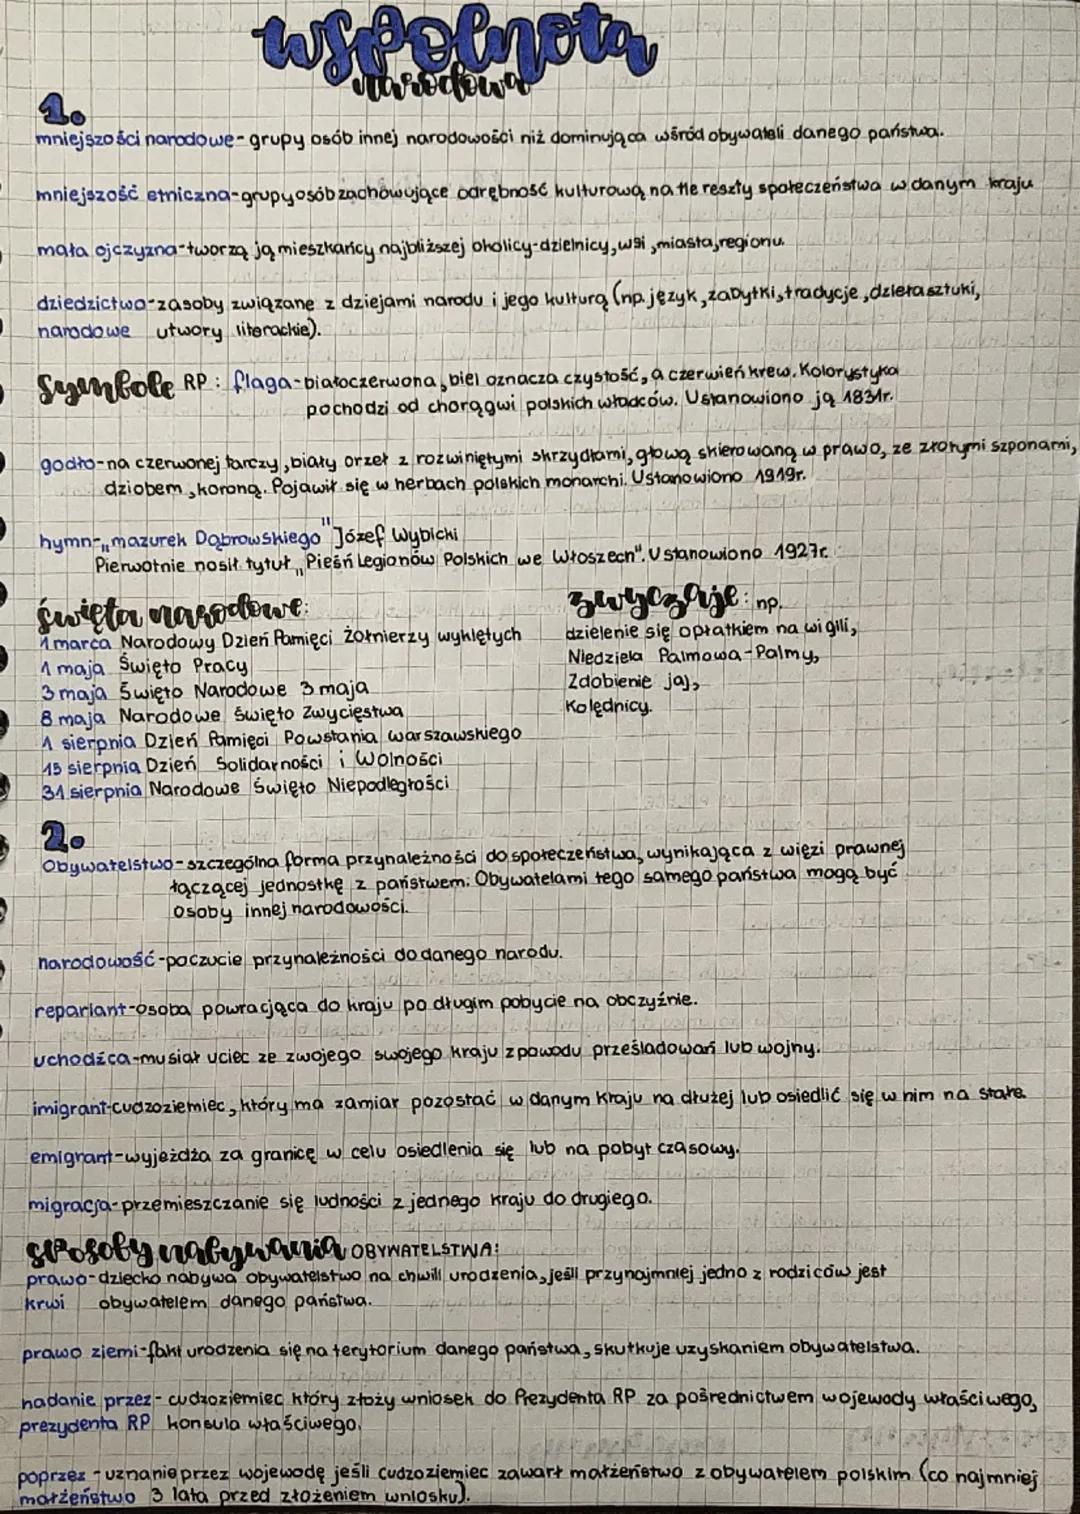 wspólnota
narodowa
1.
mniejszości narodowe- grupy osób innej narodowości niż dominująca wśród obywateli danego państwa.
mniejszość etniczna-grupy osób zachowujące odrębność kulturową na tle reszty społeczeństwa w danym kraju
mała ojczyzna-tworzą ją mieszkańcy najbliższej okolicy-dzielnicy, wsi, miasta, regionu.
dziedzictwo-zasoby związane z dziejami narodu i jego kulturą (np. język, zabytki, tradycje, dzieła sztuki,
narodowe utwory literackie).
Symbole RP: flaga-białoczerwona, biel oznacza czystość, a czerwień krew. Kolorystyka
pochodzi od chorągwi polskich władców. Ustanowiono ją 1831r.
godło-na czerwonej tarczy, biały orzeł z rozwiniętymi skrzydłami, głową skierowaną w prawo, ze złotymi szponami,
dziobem, koroną. Pojawił się w herbach polskich monarchi. Ustanowiono 1919r.
hymn-„mazurek Dąbrowskiego" Józef Wybicki
Pierwotnie nosił tytuł „Pieśń Legionów Polskich we Włoszech". Ustanowiono 1927r.
święta narodowe:
1 marca Narodowy Dzień Pamięci Żołnierzy wyklętych
1 maja Święto Pracy
3 maja Święto Narodowe 3 maja
8 maja Narodowe Święto Zwycięstwa
1 sierpnia Dzień Pamięci Powstania warszawskiego
15 sierpnia Dzień Solidarności i Wolności
31 sierpnia Narodowe Święto Niepodległości
zwyczaje: np.
dzielenie się opłatkiem na wigili,
Niedziela Palmowa-Palmy,
Zdobienie jaj,
Kolędnicy.
2.
Obywatelstwo-szczególna forma przynależności do społeczeństwa, wynikająca z więzi prawnej
łączącej jednostkę z państwem. Obywatelami tego samego państwa mogą być
osoby innej narodowości.
narodowość-poczucie przynależności do danego narodu.
repariant-osoba powracjąca do kraju po długim pobycie na obczyźnie.
uchodźca-musiał uciec ze zwojego swojego kraju z powodu prześladowań lub wojny.
imigrant-cudzoziemiec, który ma zamiar pozostać w danym kraju na dłużej lub osiedlić się w nim na stałe.
emigrant-wyjeżdża za granicę w celu osiedlenia się lub na pobyt czasowy.
migracja-przemieszczanie się ludności z jednego kraju do drugiego.
sposoby nabywania OBYWATELSTWA:
prawo-dziecko nabywa obywatelstwo na chwili urodzenia, jeśli przynajmniej jedno z rodziców jest
krwi obywatelem danego państwa.
prawo ziemi-fakt urodzenia się na terytorium danego państwa, skutkuje uzyskaniem obywatelstwa.
nadanie przez- cudzoziemiec który złoży wniosek do Prezydenta RP za pośrednictwem wojewody właściwego,
prezydenta RP konsula właściwego.
poprzez -uznanie przez wojewodę jeśli cudzoziemiec zawarł małżeństwo z obywatelem polskim (co najmniej
małżeństwo 3 lata przed złożeniem wniosku).